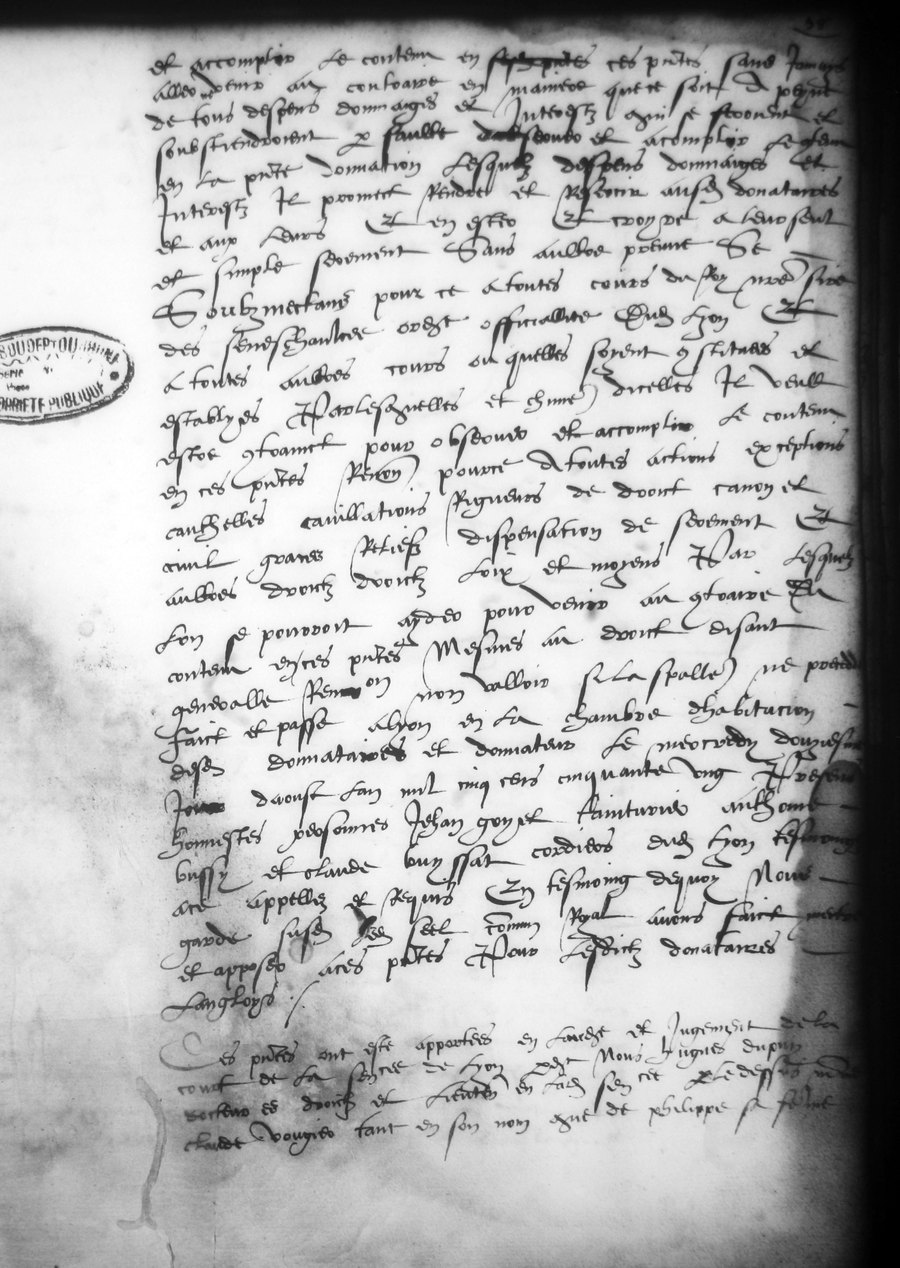 et accomplir le contenu en ces pntes sans Jamays
aller venir au contraire en maniere que ce soit A peyne
de tous despens dommaiges et Interestz qui se feroient et
soubstiendroient p faulte dobserver et acomplir le contenu
en la pnte donnation Lesquelz despens dommaiges et
Interestz Il promect Rendre et Reffereoir ausd donataires
et aux leurs Et en estre Et croyre a leur seul
et simple serement Sans aultre preuve Se
Soubzmectans pour ce a toutes cours du Roy nre sire
des seneschaulcee ordre officiallite Dud Lyon Et
a toutes aultres cours ou quelles soyent 9stitues et
establyes Par lesquelles et chune dicelles Il veult
estre 9trainct pour observer et accomplir le contenu
en ces pntes Renon pource A toutes actions exceptions
cauthelles cavillations Rigueurs de droict canon et
civil graces Reliefz dispensation de serement Et
aultres droictz droictz Loix et moyens Par Lesquelz
Lon se pourroit ayder pour venir au 9traire Du
contenu en ces pntes Mesmes au droict disant
generalle Renon non valloir si la spalle ne precede
Faict et passe a lyon en la chambre dhabitacion
desd donnataires et donnateur Le mercredy douziesme
Jour daoust Lan mil cinq cens cinquante ung Presens
honnestes personnes Jehan goyet tainturier anthoine
bussy et claude buyssat cordiers dud Lyon tesmoings
ace appellez et Requis En tesmoing dequoy Nous
garde susd Led seel commun Royal avons faict mectre
et apposer aces pntes Pour Lesdictz donataires
Langloys
Ces pntes ont este apportees en Laude et Jugement de la
court de la sencee de Lyon pdt Nous Hugues dupuy
docteur es droictz et Lieuten en lad sencee p Le dessus nomme
claude vougier tant en son nom que de philippe sa femme
PROPRIETE PUBLIQUE